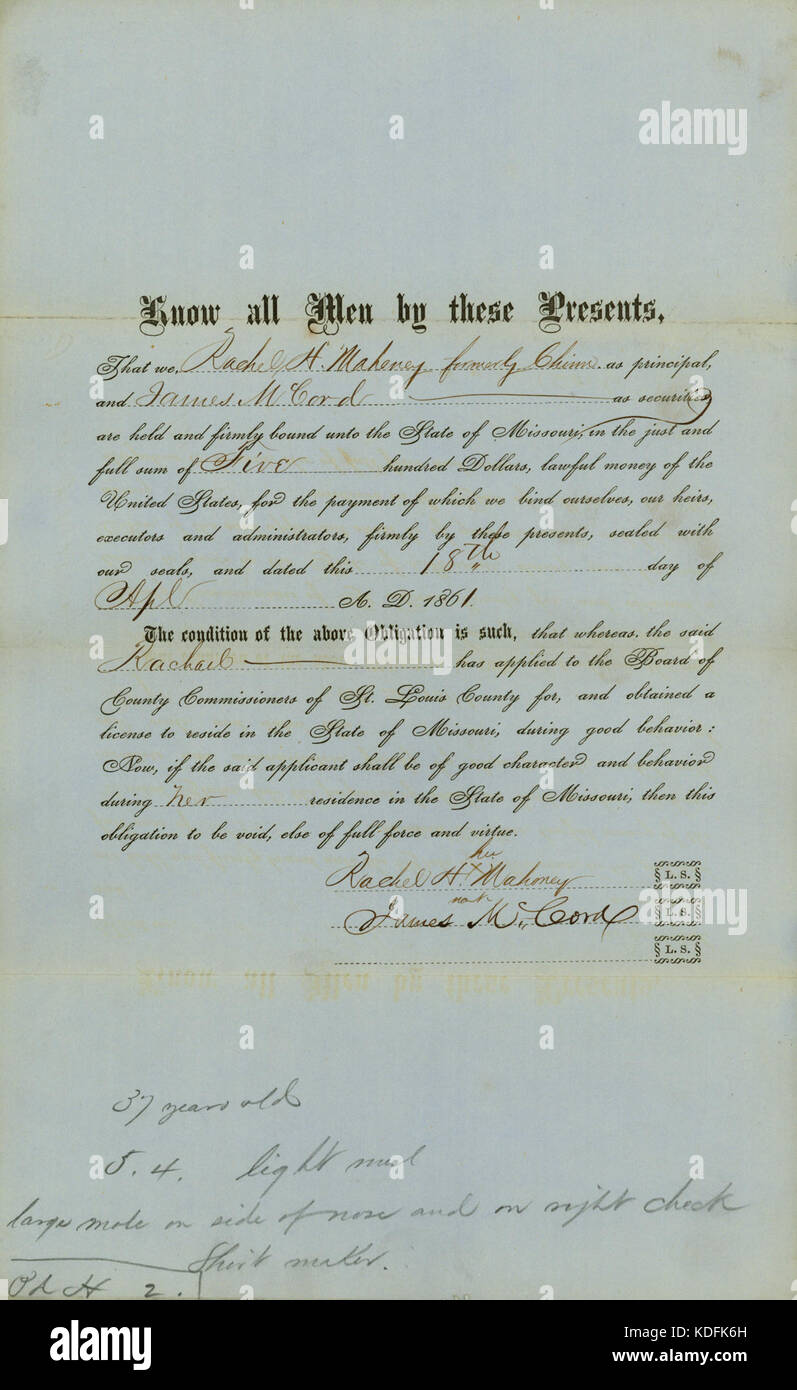 Know all Men by these Presents,
That we, Rachel H. Mahoney formerly as principal,
and James McCord as securities
are held and firmly bound unto the State of Missouri, in the just and
full sum of Five hundred Dollars, lawful money of the
United States, for the payment of which we bind ourselves, our heirs,
executors and administrators, firmly by these presents, sealed with
our seals, and dated this 18th day of
Apl A. D. 1861
The condition of the above Obligation is such, that whereas, the said
Rachael has applied to the Board of
County Commissioners of St. Louis County for, and obtained a
license to reside in the State of Missouri, during good behavior:
Now, if the said applicant shall be of good character and behavior
during her residence in the State of Missouri, then this
obligation to be void, else of full force and virtue.
her
Rachel H. X Mahoney L. S.
mark
James McCord L. S.
L. S.
37 years old
5. 4. light
large mole on side of nose and on right cheek
Shirt maker.
Pd H 2.
a alamy
alamy
Image ID: KDFK6H
www.alamy.com